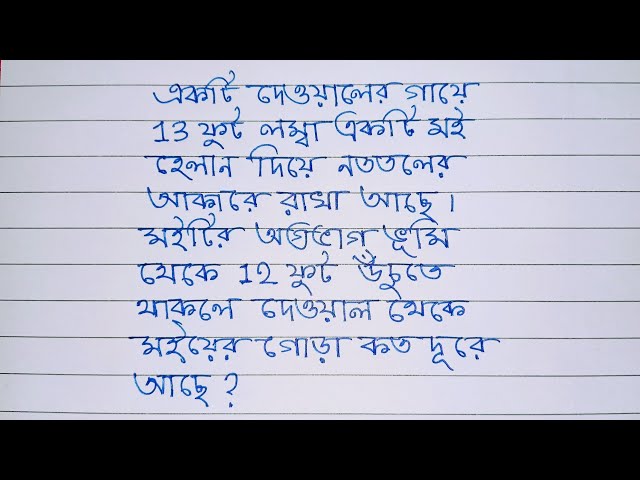 একটি দেওয়ালের গায়ে
13 ফুট লম্বা একটি মই
হেলান দিয়ে নততলের
আকারে রাখা আছে।
মইটির অগ্রভাগ ভূমি
থেকে 12 ফুট উঁচুতে
থাকলে দেওয়াল থেকে
মইয়ের গোড়া কত দূরে
আছে?